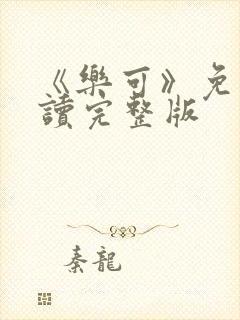 《樂可》免
讀完整版
秦龍